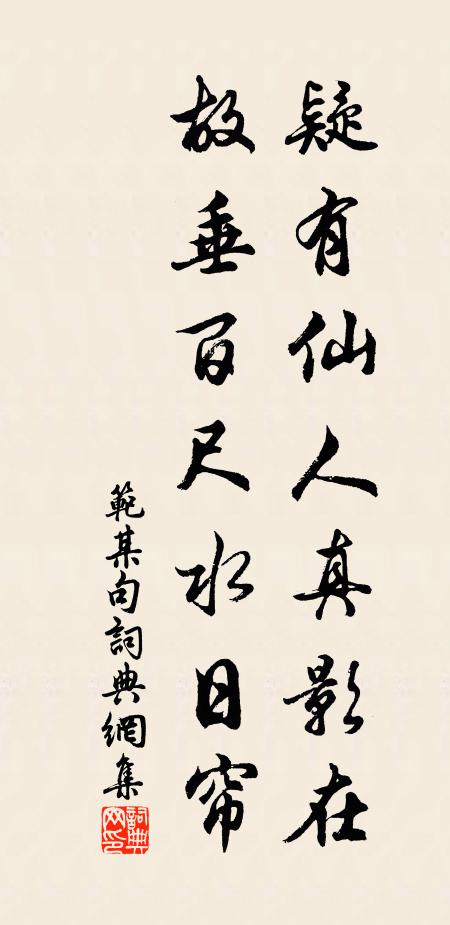 疑有仙人真影在
故垂百尺水日帘
範某句詞典網集
詞典網印